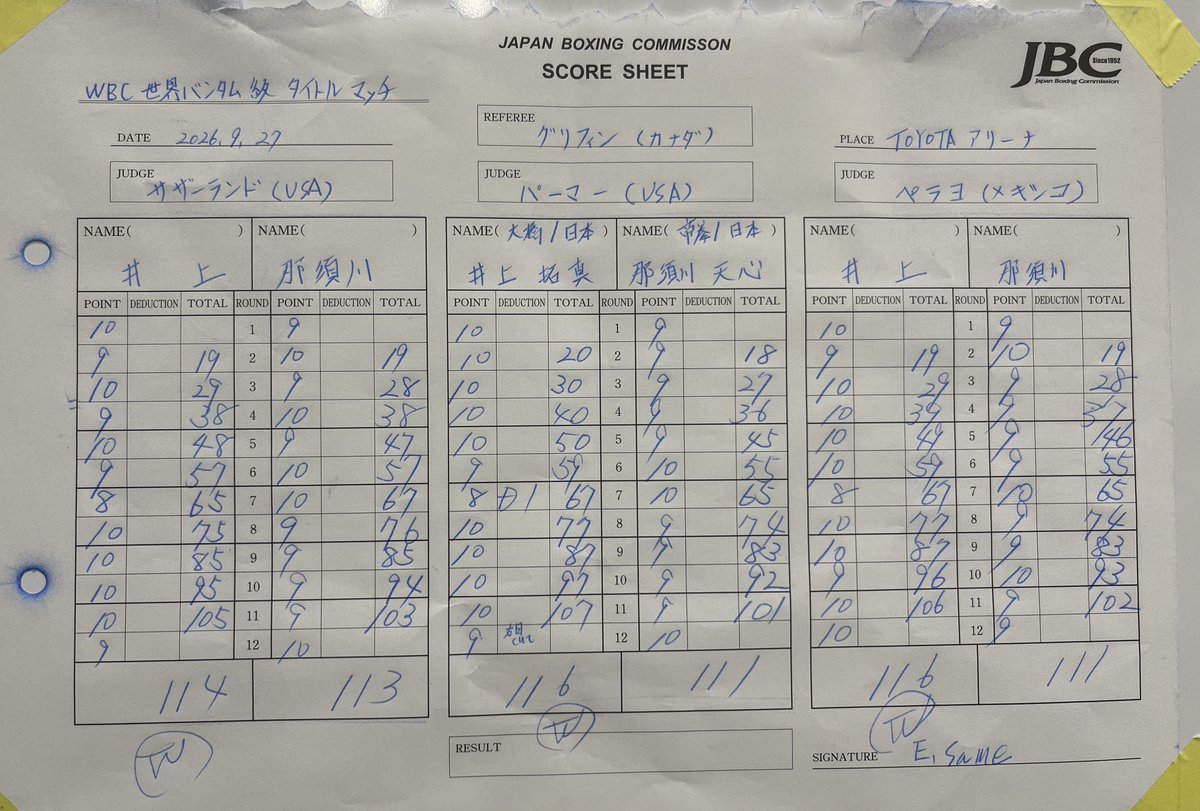 JAPAN BOXING COMMISSON
SCORE SHEET
JBC Since1952
Japan Boxing Commission
WBC 世界バンタム級 タイトルマッチ
DATE 2026.9.27
REFEREE グリフィン (カナダ)
PLACE TOYOTA アリーナ
JUDGE サザーランド(USA)
JUDGE パーマー(USA)
JUDGE ペラヨ(メキシコ)
NAME( ) NAME( ) NAME(大橋/日本) NAME(帝拳/日本) NAME( ) NAME( )
井上 那須川 井上 拓真 那須川 天心 井上 那須川
POINT DEDUCTION TOTAL ROUND POINT DEDUCTION TOTAL POINT DEDUCTION TOTAL ROUND POINT DEDUCTION TOTAL POINT DEDUCTION TOTAL ROUND POINT DEDUCTION TOTAL
10 1 9 10 1 9 10 1 9
9 19 2 10 19 10 20 2 9 18 9 19 2 10 19
10 29 3 9 28 10 30 3 9 27 10 29 3 9 28
9 38 4 10 38 10 40 4 9 36 10 39 4 9 37
10 48 5 9 47 10 50 5 9 45 10 49 5 9 46
9 57 6 10 57 9 59 6 10 55 10 59 6 9 55
8 65 7 10 67 8 D1 67 7 10 65 8 67 7 10 65
10 75 8 9 76 10 77 8 9 74 10 77 8 9 74
10 85 9 9 85 10 87 9 9 83 10 87 9 9 83
10 95 10 9 94 10 97 10 9 92 9 96 10 10 93
10 105 11 9 103 10 107 11 9 101 10 106 11 9 102
9 12 10 9 12 10 10 12 9
114 113 116 111 116 111
RESULT
SIGNATURE E. Same